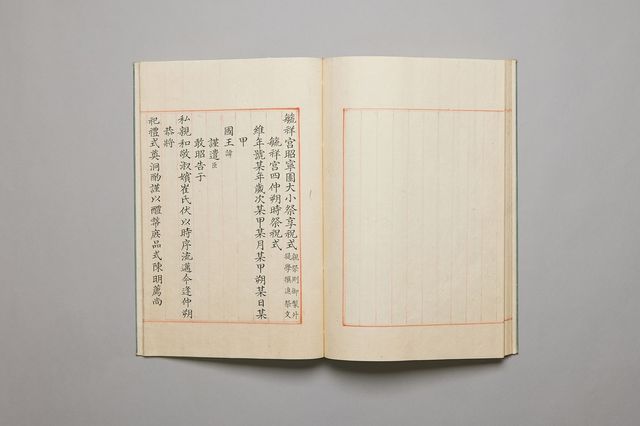 毓祥宮昭寧園大小祭享祝式 親祭則御製片
提學撰進祭文
毓祥宮四仲朔時祭祝式
維年號某年歲次某甲某月某甲朔某日某
甲
國王 諱
謹遣 臣
敢昭告于
私親和敬淑嬪崔氏伏以時序流邁今逢仲朔
恭將
祀禮式奠泂酌謹以醴幣庶品式陳明薦尚